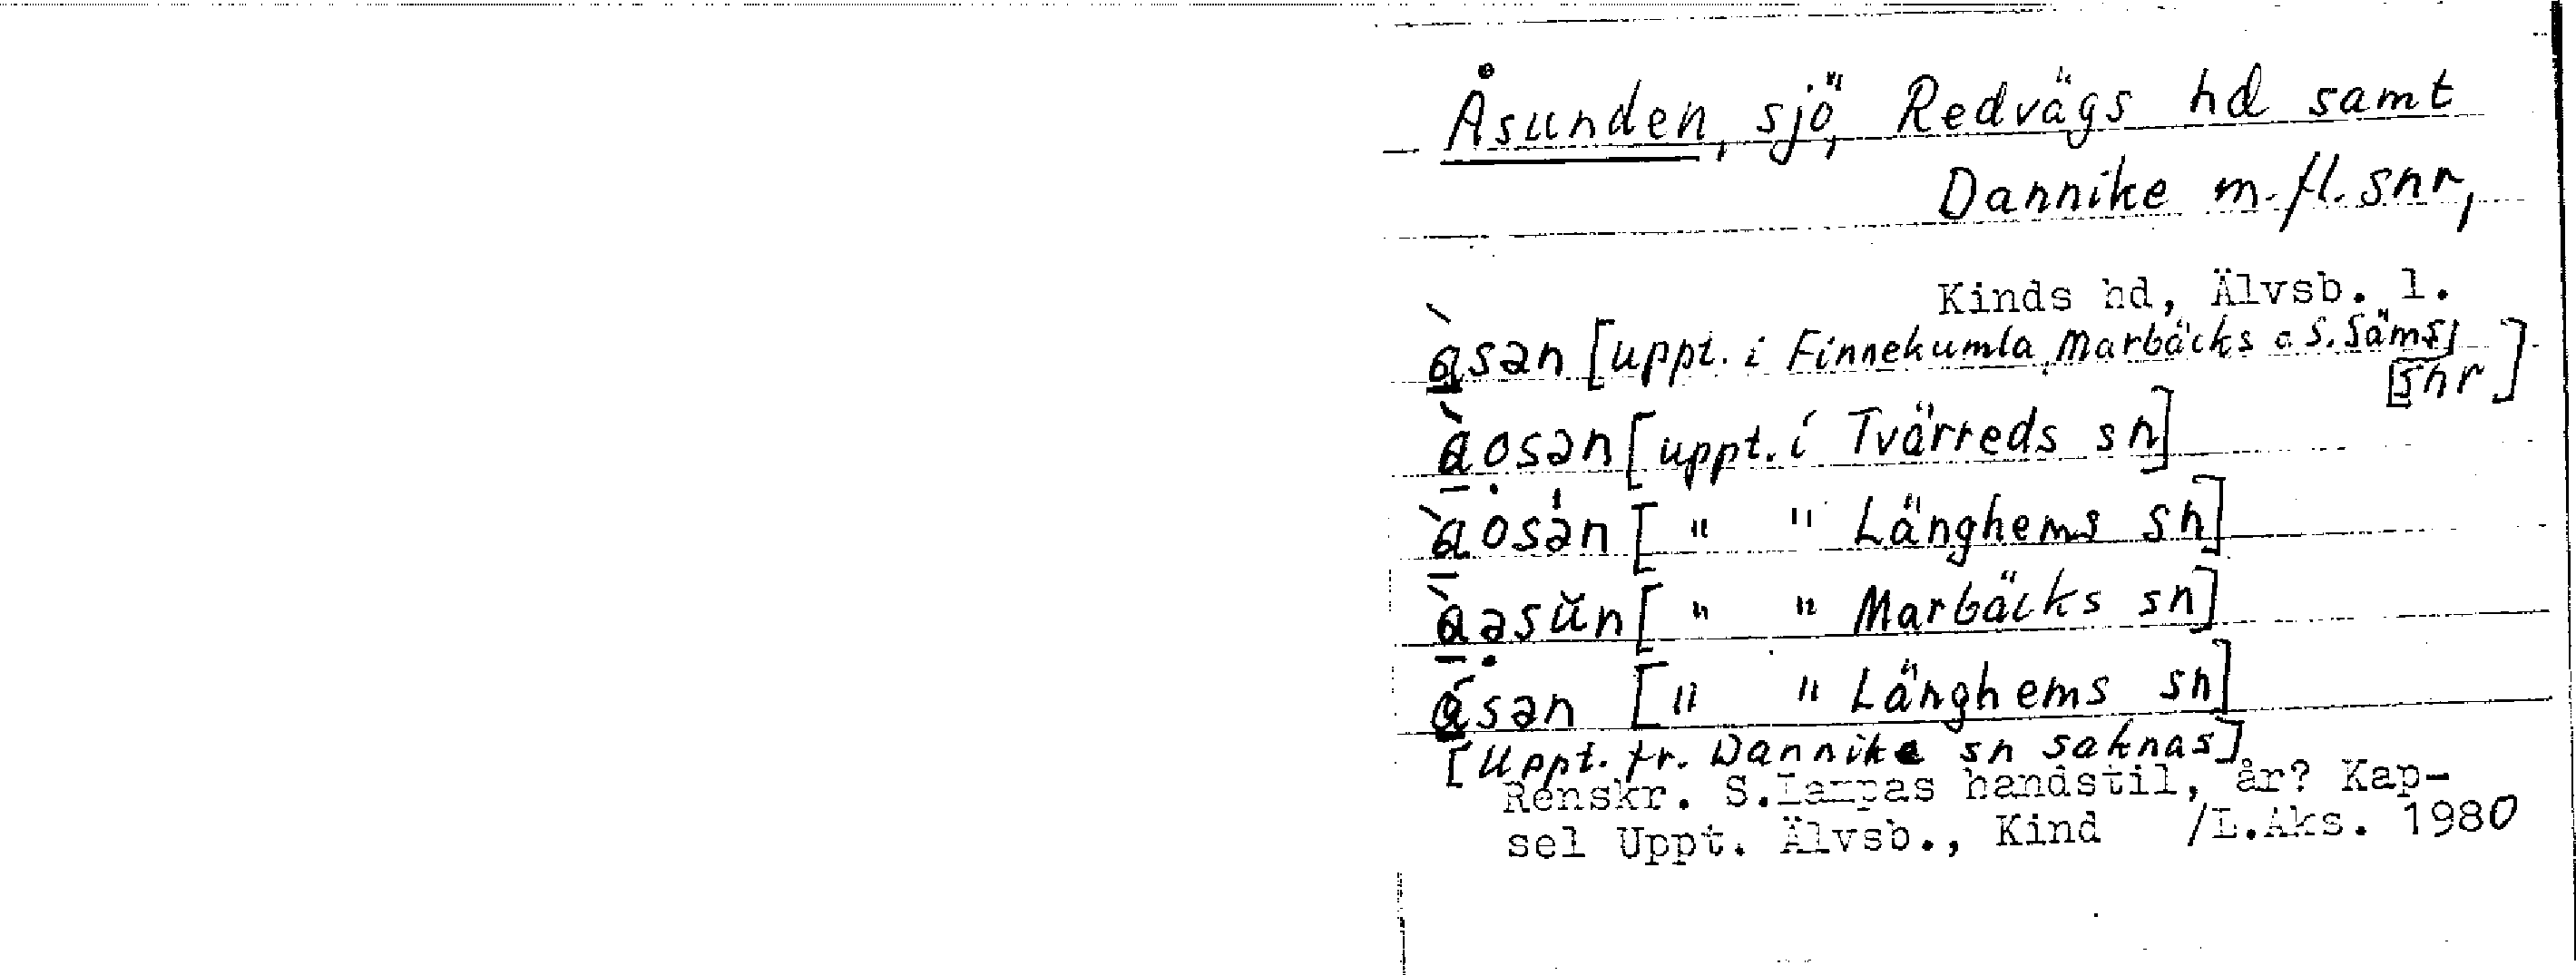 Åsunden, sjö, Redvägs hd samt
Dannike m.fl. snr,
Kinds hd, Älvsb. l.
à̱sən [uppt. i Finnekumla, Marbäcks o S. Säms
snr]
à̱ọsən [uppt. i Tvärreds sn]
à̱osə̀n [ " " Länghems sn]
à̱əsŭn [ " " Marbäcks sn]
á̱sən [ " " Länghems sn]
[Uppt. fr. Dannike sn saknas]
Renskr. S.Lampas handstil, år? Kap-
sel Uppt. Älvsb., Kind /L.Aks. 1980